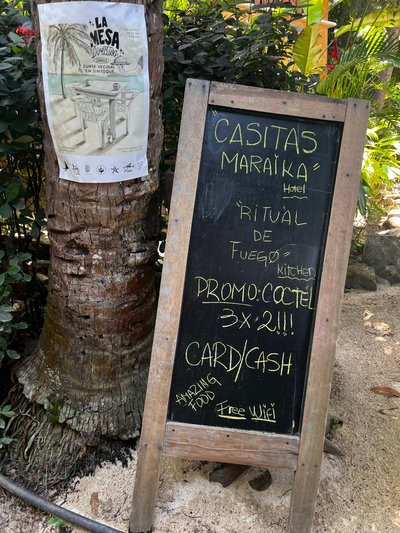 LA
MESA
"CASITAS
MARAIKA"
Hotel
"RITUAL
DE
FUEGO"
KITCHEN
PROMO:COCTEL
3x2!!!
CARD/CASH
AMAZING
FOOD
Free Wifi